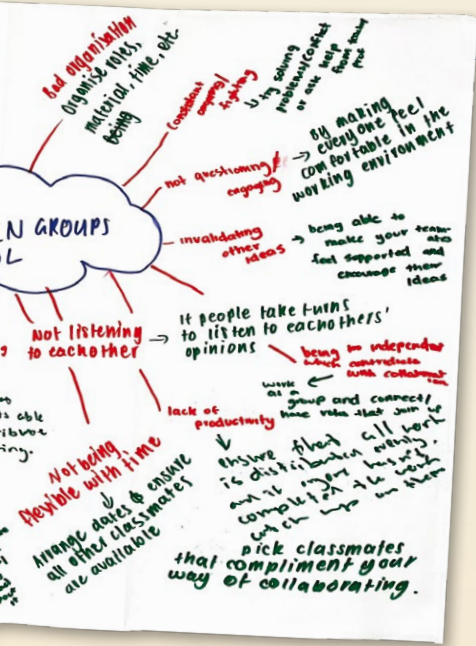 Bad organisation
Organise roles,
material, time, etc.
being
Constant
arguing/
fighting
↳ try solving
problems/conflict
or ask help
from
not questioning/
engaging
→ By making
everyone feel
comfortable in the
working environment
N GROUPS
OL
invalidating
other
ideas
→ being able to
make your team-
feel supported and
encourage their
ideas
Not listening
to eachother
→ If people take turns
to listen to eachothers'
opinions
being too independent
which contradicts
with collaborat
ion
work ←
as a
group and connect/
have roles that join up
lack of
productivity
↓
ensure that all work
is distributed evenly.
completed the work
Not being
flexible with time
↓
Arrange dates & ensure
all other classmates
are available
pick classmates
that compliment your
way of collaborating.
able